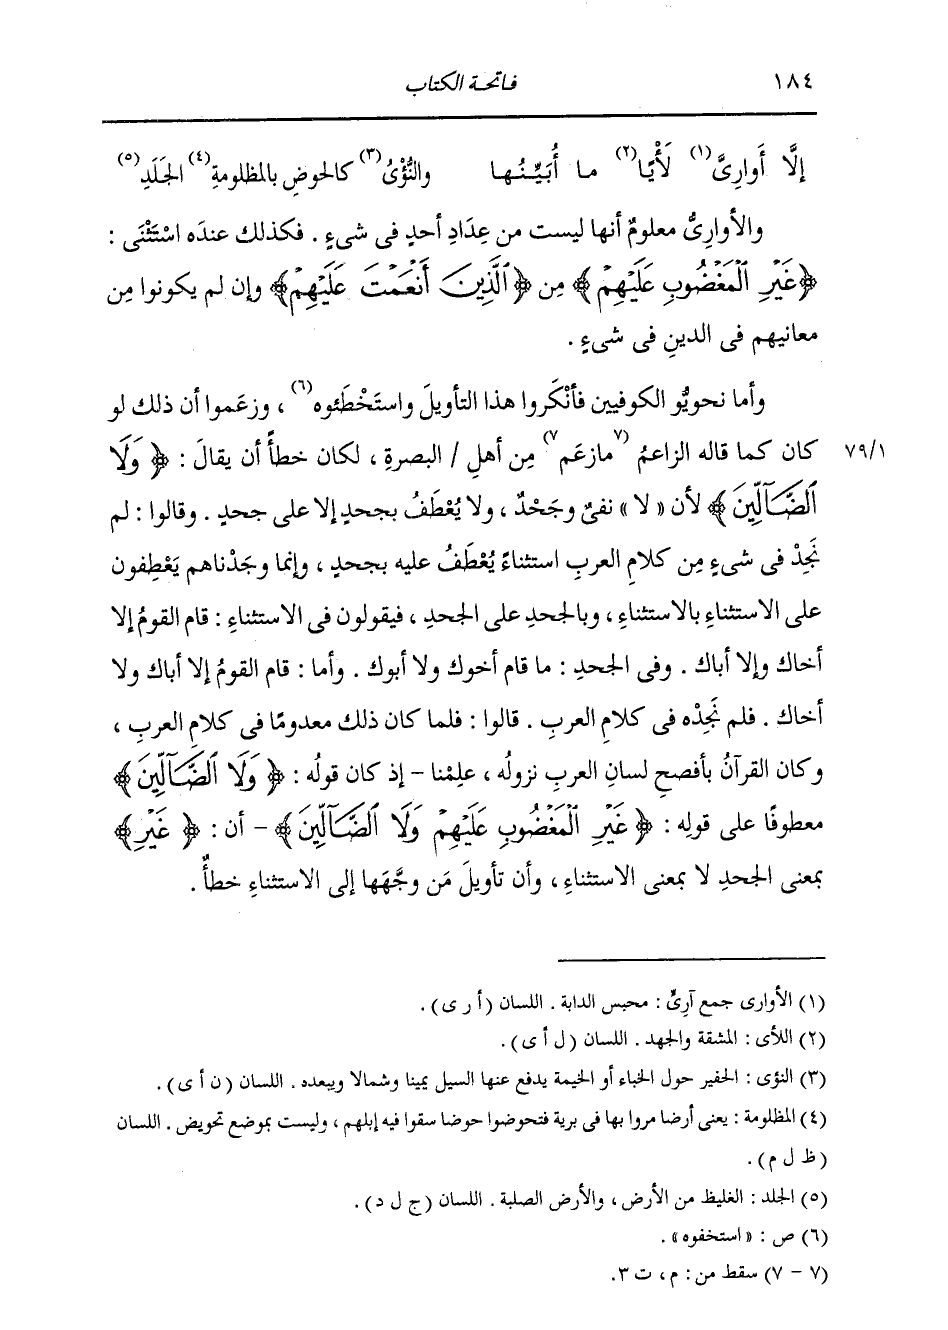 ١٨٤ فاتحة الكتاب
إلَّا أَوارِىَّ(١) لَأْيًا(٢) ما أُبَيِّنُها والنُّؤْىُ(٣) كالحوضِ بالمظلومةِ(٤) الجَلَدِ(٥)
والأوارِىُّ معلومٌ أنها ليست من عِدَادِ أحدٍ فى شىءٍ . فكذلك عندَه اسْتَثْنَى :
﴿غَيْرِ الْمَغْضُوبِ عَلَيْهِمْ﴾ مِن ﴿الَّذِينَ أَنْعَمْتَ عَلَيْهِمْ﴾ وإن لم يكونوا مِن
معانيهم فى الدينِ فى شىءٍ .
وأما نحويُّو الكوفيين فأنْكَروا هذا التأويلَ واستَخْطَئوه(٦) ، وزعَموا أن ذلك لو
كان كما قاله الزاعمُ (٧مازعَم٧) مِن أهلِ / البصرةِ ، لكان خطأً أن يقالَ : ﴿ وَلَا ٧٩/١
الضَّآلِّينَ﴾ لأن « لا » نفىٌ وجَحْدٌ ، ولا يُعْطَفُ بجحدٍ إلا على جحدٍ . وقالوا : لم
نَجِدْ فى شىءٍ مِن كلامِ العربِ استثناءً يُعْطَفُ عليه بجحدٍ ، وإنما وجَدْناهم يَعْطِفون
على الاستثناءِ بالاستثناءِ ، وبالجحدِ على الجحدِ ، فيقولون فى الاستثناءِ : قام القومُ إلا
أخاك وإلا أباك . وفى الجحدِ : ما قام أخوك ولا أبوك . وأما : قام القومُ إلا أباك ولا
أخاك . فلم نَجِدْه فى كلامِ العربِ . قالوا : فلما كان ذلك معدومًا فى كلامِ العربِ ،
وكان القرآنُ بأفصحِ لسانِ العربِ نزولُه ، علِمْنا - إذ كان قولُه : ﴿ وَلَا الضَّآلِّينَ ﴾
معطوفًا على قولِه : ﴿ غَيْرِ الْمَغْضُوبِ عَلَيْهِمْ وَلَا الضَّآلِّينَ﴾ - أن : ﴿ غَيْرِ﴾
بمعنى الجحدِ لا بمعنى الاستثناءِ ، وأن تأويلَ مَن وجَّهَها إلى الاستثناءِ خطأٌ .
(١) الأوارى جمع آرِىٍّ : محبس الدابة . اللسان (أ ر ى) .
(٢) اللأى : المشقة والجهد . اللسان (ل أ ى) .
(٣) النؤى : الحفير حول الخباء أو الخيمة يدفع عنها السيل يمينا وشمالا ويبعده . اللسان (ن أ ى) .
(٤) المظلومة : يعنى أرضا مروا بها فى برية فتحوضوا حوضا سقوا فيه إبلهم ، وليست بموضع تحويض . اللسان
(ظ ل م) .
(٥) الجلد : الغليظ من الأرض ، والأرض الصلبة . اللسان (ج ل د) .
(٦) ص : « استخفوه » .
(٧ - ٧) سقط من : م ، ت ٣ .